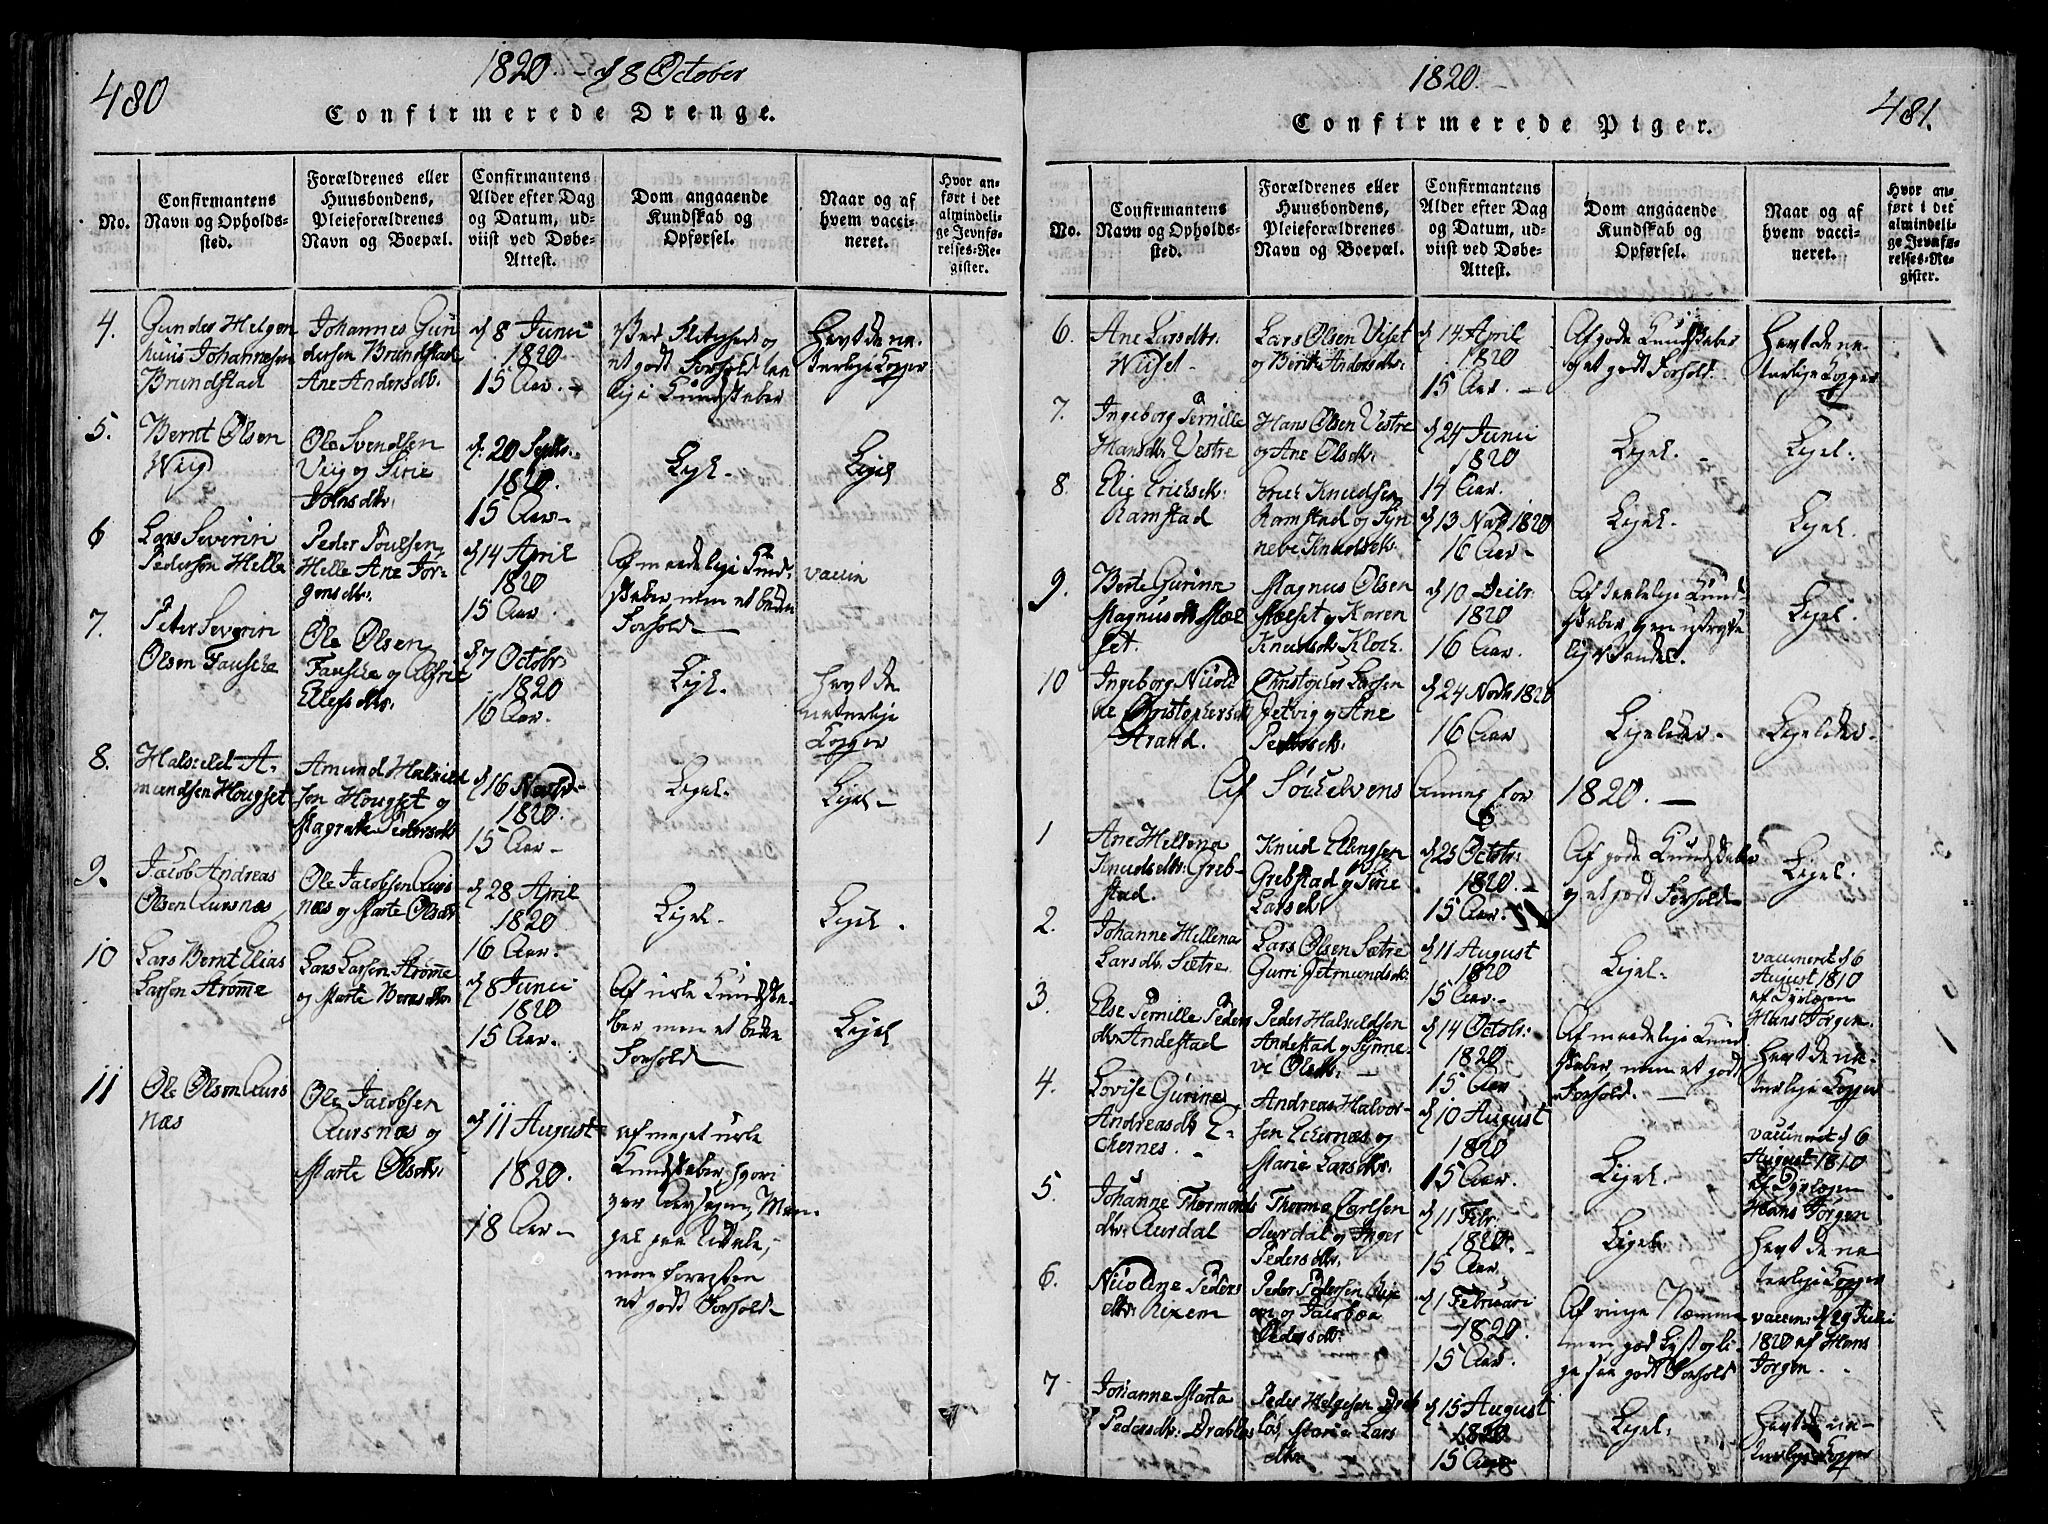 480
1820. d 8 October
Confirmerede Drenge.
No.
Confirmantens
Navn og Opholds-
sted.
Forældrenes eller
Huusbondens,
Pleieforældrenes
Navn og Boepæl.
Confirmantens
Alder efter Dag
og Datum, ud-
viist ved Døbe-
Attest.
Dom angaaende
Kundskab og
Opførsel.
Naar og af
hvem vacci-
neret.
Hvor an-
ført i det
almindeli-
ge Jevnfø-
relses-Re-
gister.
4.
Gunder Helgen
Johannesen
Brundstad
Johannes Gun
dersen Brundstad
Ane Andersdtr.
d 8 Junii
1820
15 Aar.
et godt Forhold
i Kundskaber
Havt de na-
turlige Kopper
5.
Bernt Olsen
Viig
Ole Svendsen
Viig og Sirie
Johnsdtr.
d. 20 Septbr.
1820.
15 Aar
Ligel.
Ligel
6
Lars Severin
Pedersen Helle
Peder Poulsen
Helle Ane Jør-
gensdtr.
d 14 April
1820
15 Aar.
Af maadelige Kund-
skaber, men et bedre
Forhold
vaccin
7.
Peter Severin
Olsen Fauske
Ole Olsen
Fauske og
Ellefsdtr.
d 7 Octobr.
1820
16 Aar.
Ligel.
Havt de
naturlige
Kopper
8.
Halveld A-
mundsen Hougset
Amund Halveld
sen Hougset og
Magrete Pedersdtr
d 16 Novbr.
1820.
15 Aar
Ligel.
Ligel
9.
Jacob Andreas
Olsen Aursnæs
Ole Jacobsen Aurs
næs og Marte Olsdtr.
d 28 April
1820
16 Aar.
Ligel.
Ligel.
10
Lars Bernt Elias
Larsen Strømme
Lars Larsen Strømme
og Marte Berntsdtr
d 8 Junii
1820
15 Aar.
Af usle Kundska-
ber men et bedre
Forhold
Ligel
11
Ole Olsen Aurs
næs
Ole Jacobsen
Aursnæs og
Marte Olsdtr.
d 11 August
1820.
18 Aar
af meget usle
Kundskaber, hvori
men forresten
et godt Forhold
1820.
481.
Confirmerede Piger.
No.
Confirmantens
Navn og Opholds-
sted.
Forældrenes eller
Huusbondens,
Pleieforældrenes
Navn og Boepæl.
Confirmantens
Alder efter Dag
og Datum, ud-
viist ved Døbe-
Attest.
Dom angaaende
Kundskab og
Opførsel.
Naar og af
hvem vacci-
neret.
Hvor an-
ført i det
almindeli-
ge Jevnfø-
relses-Re-
gister.
6.
Ane Larsdtr.
Viset
Lars Olsen Viset
og Berit Andersdtr.
d 14 April
1820
15 Aar.
Af gode Kundskaber
og et godt Forhold.
Havt de na-
turlige Kopper
7.
Ingeborg Pernille
Hansdtr. Vestre
Hans Olsen Vestre
og Ane Olsdtr.
d 24 Junii
1820
14 Aar.
Ligel.
Ligel.
8.
Elie Ericksdtr.
Ramstad
Erick Knudsen
Ramstad og Syn
neve Knudsdtr.
d 13 Novbr 1820
16 Aar
Ligel.
Ligel.
9.
Berte Gurina
Magnusdtr Mæl
set.
Magnus Olsen
Mælset og Karen
Knudsdtr Klock.
d 10 Decbr.
1820
16 Aar.
Af taalelige Kund
skaber
Ligel.
10
Ingeborg Nicoli
ne Christophersdtr
Strand.
Christopher Larsen
Petvig og Ane
Pedersdtr.
d 24 Novbr 1820
16 Aar
Ligeledes.
Ligeledes.
Af Søckelvens Annex for 1820.
1
Ane Helena
Knudsdtr. Greb-
stad.
Knud Ellingsen
Grebstad og Sirie
Larsdtr.
d 25 Octobr.
1820.
15 Aar.
Af gode Kundskaber
og et godt Forhold
Ligel.
2.
Johanne Hellena
Larsdtr. Sætre
Lars Olsen Sætre
Gurri Jetmundsdtr.
d 11 August
1820
15 Aar.
Ligel.
vaccineret d 6
August 1810
af
Hans Jørgen.
3.
Else Pernille Peders
dtr. Andestad
Peder Halveldsen
Andestad og Synne-
ve Olsdtr.
d 14 Octobr.
1820
15 Aar
Af maadelige Kund
skaber, men et godt
Forhold.
Havt de na-
turlige Kopper
4.
Lovise Gurine
Andreasdtr E-
ckernes.
Andreas Halvor-
sen Eckernæs og
Marie Larsdtr.
d 10 August
1820
15 Aar.
Ligel.
vaccineret d 6
August 1810
af
Hans Jørgen
5.
Johanne Thormods
dtr. Aurdal
Thormo Carlsen
Aurdal og Inger
Pedersdtr.
d 11 Febr.
1820.
15 Aar.
Ligel.
Havt de na
turlige Kopper
6.
Nicoline Peders
dtr. Rixem
Peder Pedersen
og Jacobæa
Pedersdtr.
d 1 Februari
1820.
15 Aar.
Af ringe Næmme
men god Lyst og li-
ge saa godt Forhold
vaccin. d 29 Juli
1820 af Hans
Jørgen.
7
Johanne Marta
Pedersdtr. Drabløs
Peder Helgesen Drab
løs, Maria Lars
dtr
d 15 August
1820
15 Aar
Ligel.
Havt de na-
turlige Kopper